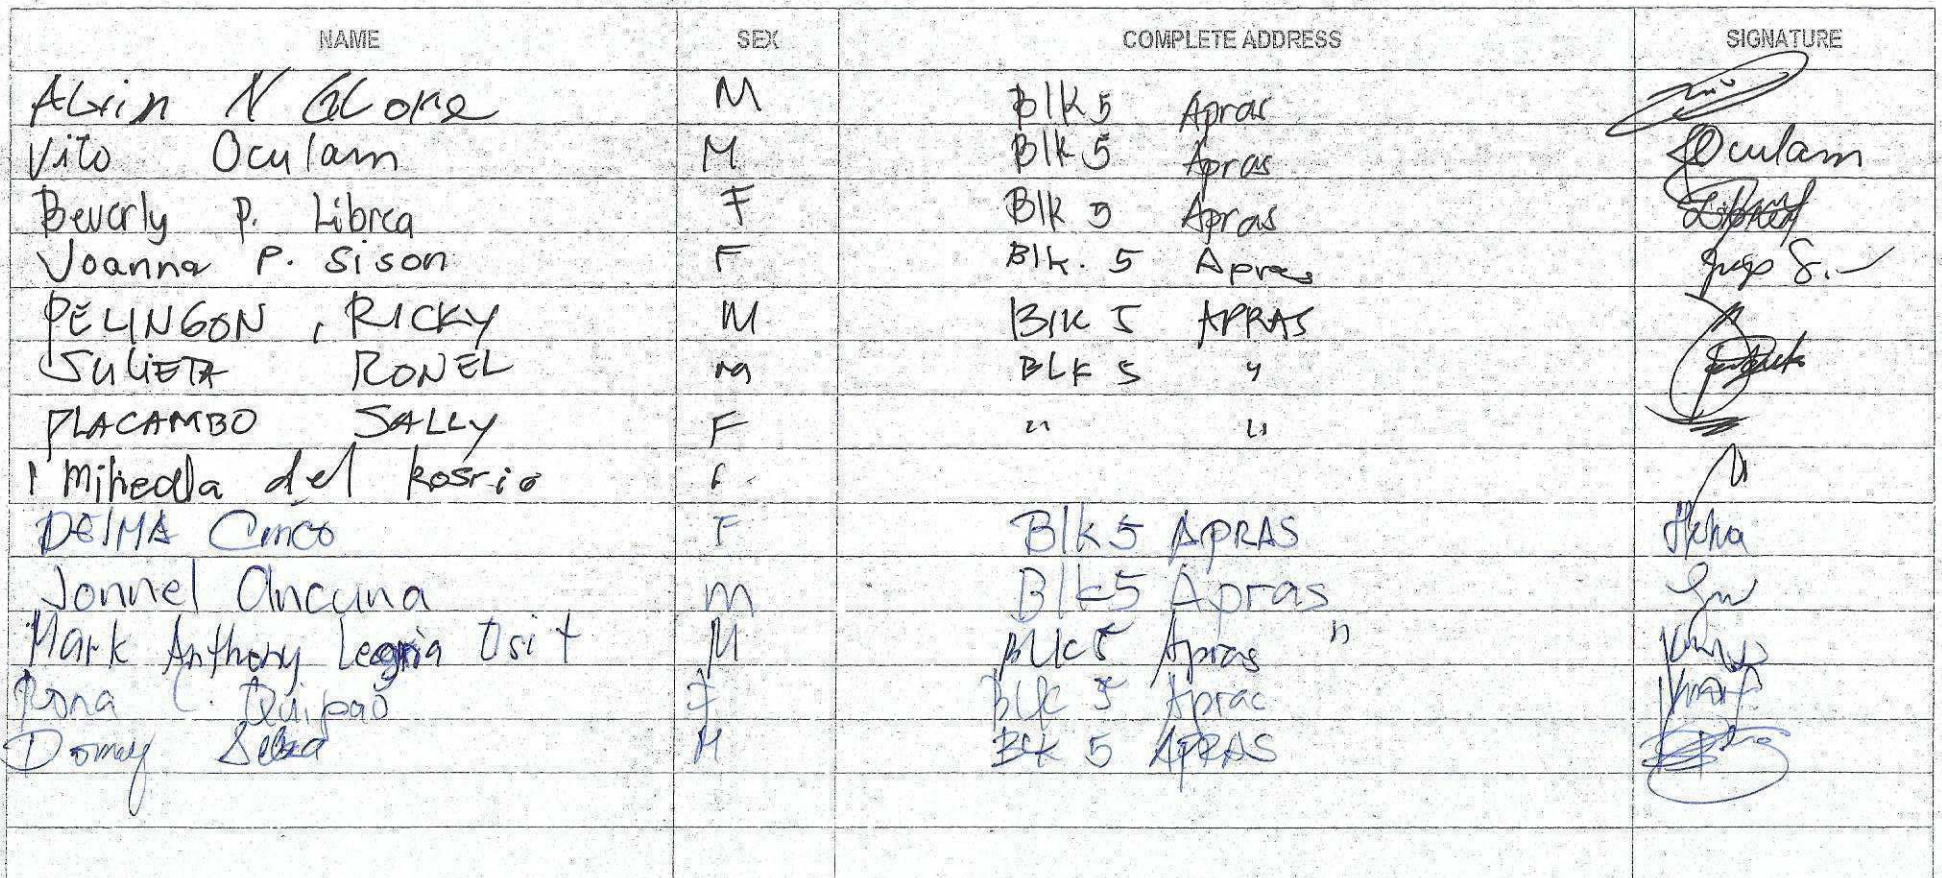 NAME SEX COMPLETE ADDRESS SIGNATURE
Alvin N M Blk 5 Apras
Vito Oculam M Blk 5 Apras Oculam
Beverly P. Librea F Blk 5 Apras
Joanna P. Sison F Blk. 5 Apras
PELINGON, RICKY M Blk 5 APRAS
JULIETA RONEL M BLK 5 "
PLACAMBO SALLY F " "
del Rosrio F
DElMA Cinco F Blk 5 APRAS
Jonnel Ancuna m Blk5 Apras
Mark Anthony Legria Usit M Blk 5 Apras "
Rona C. Quipao F Blk 5 Apras
M Blk 5 APRAS